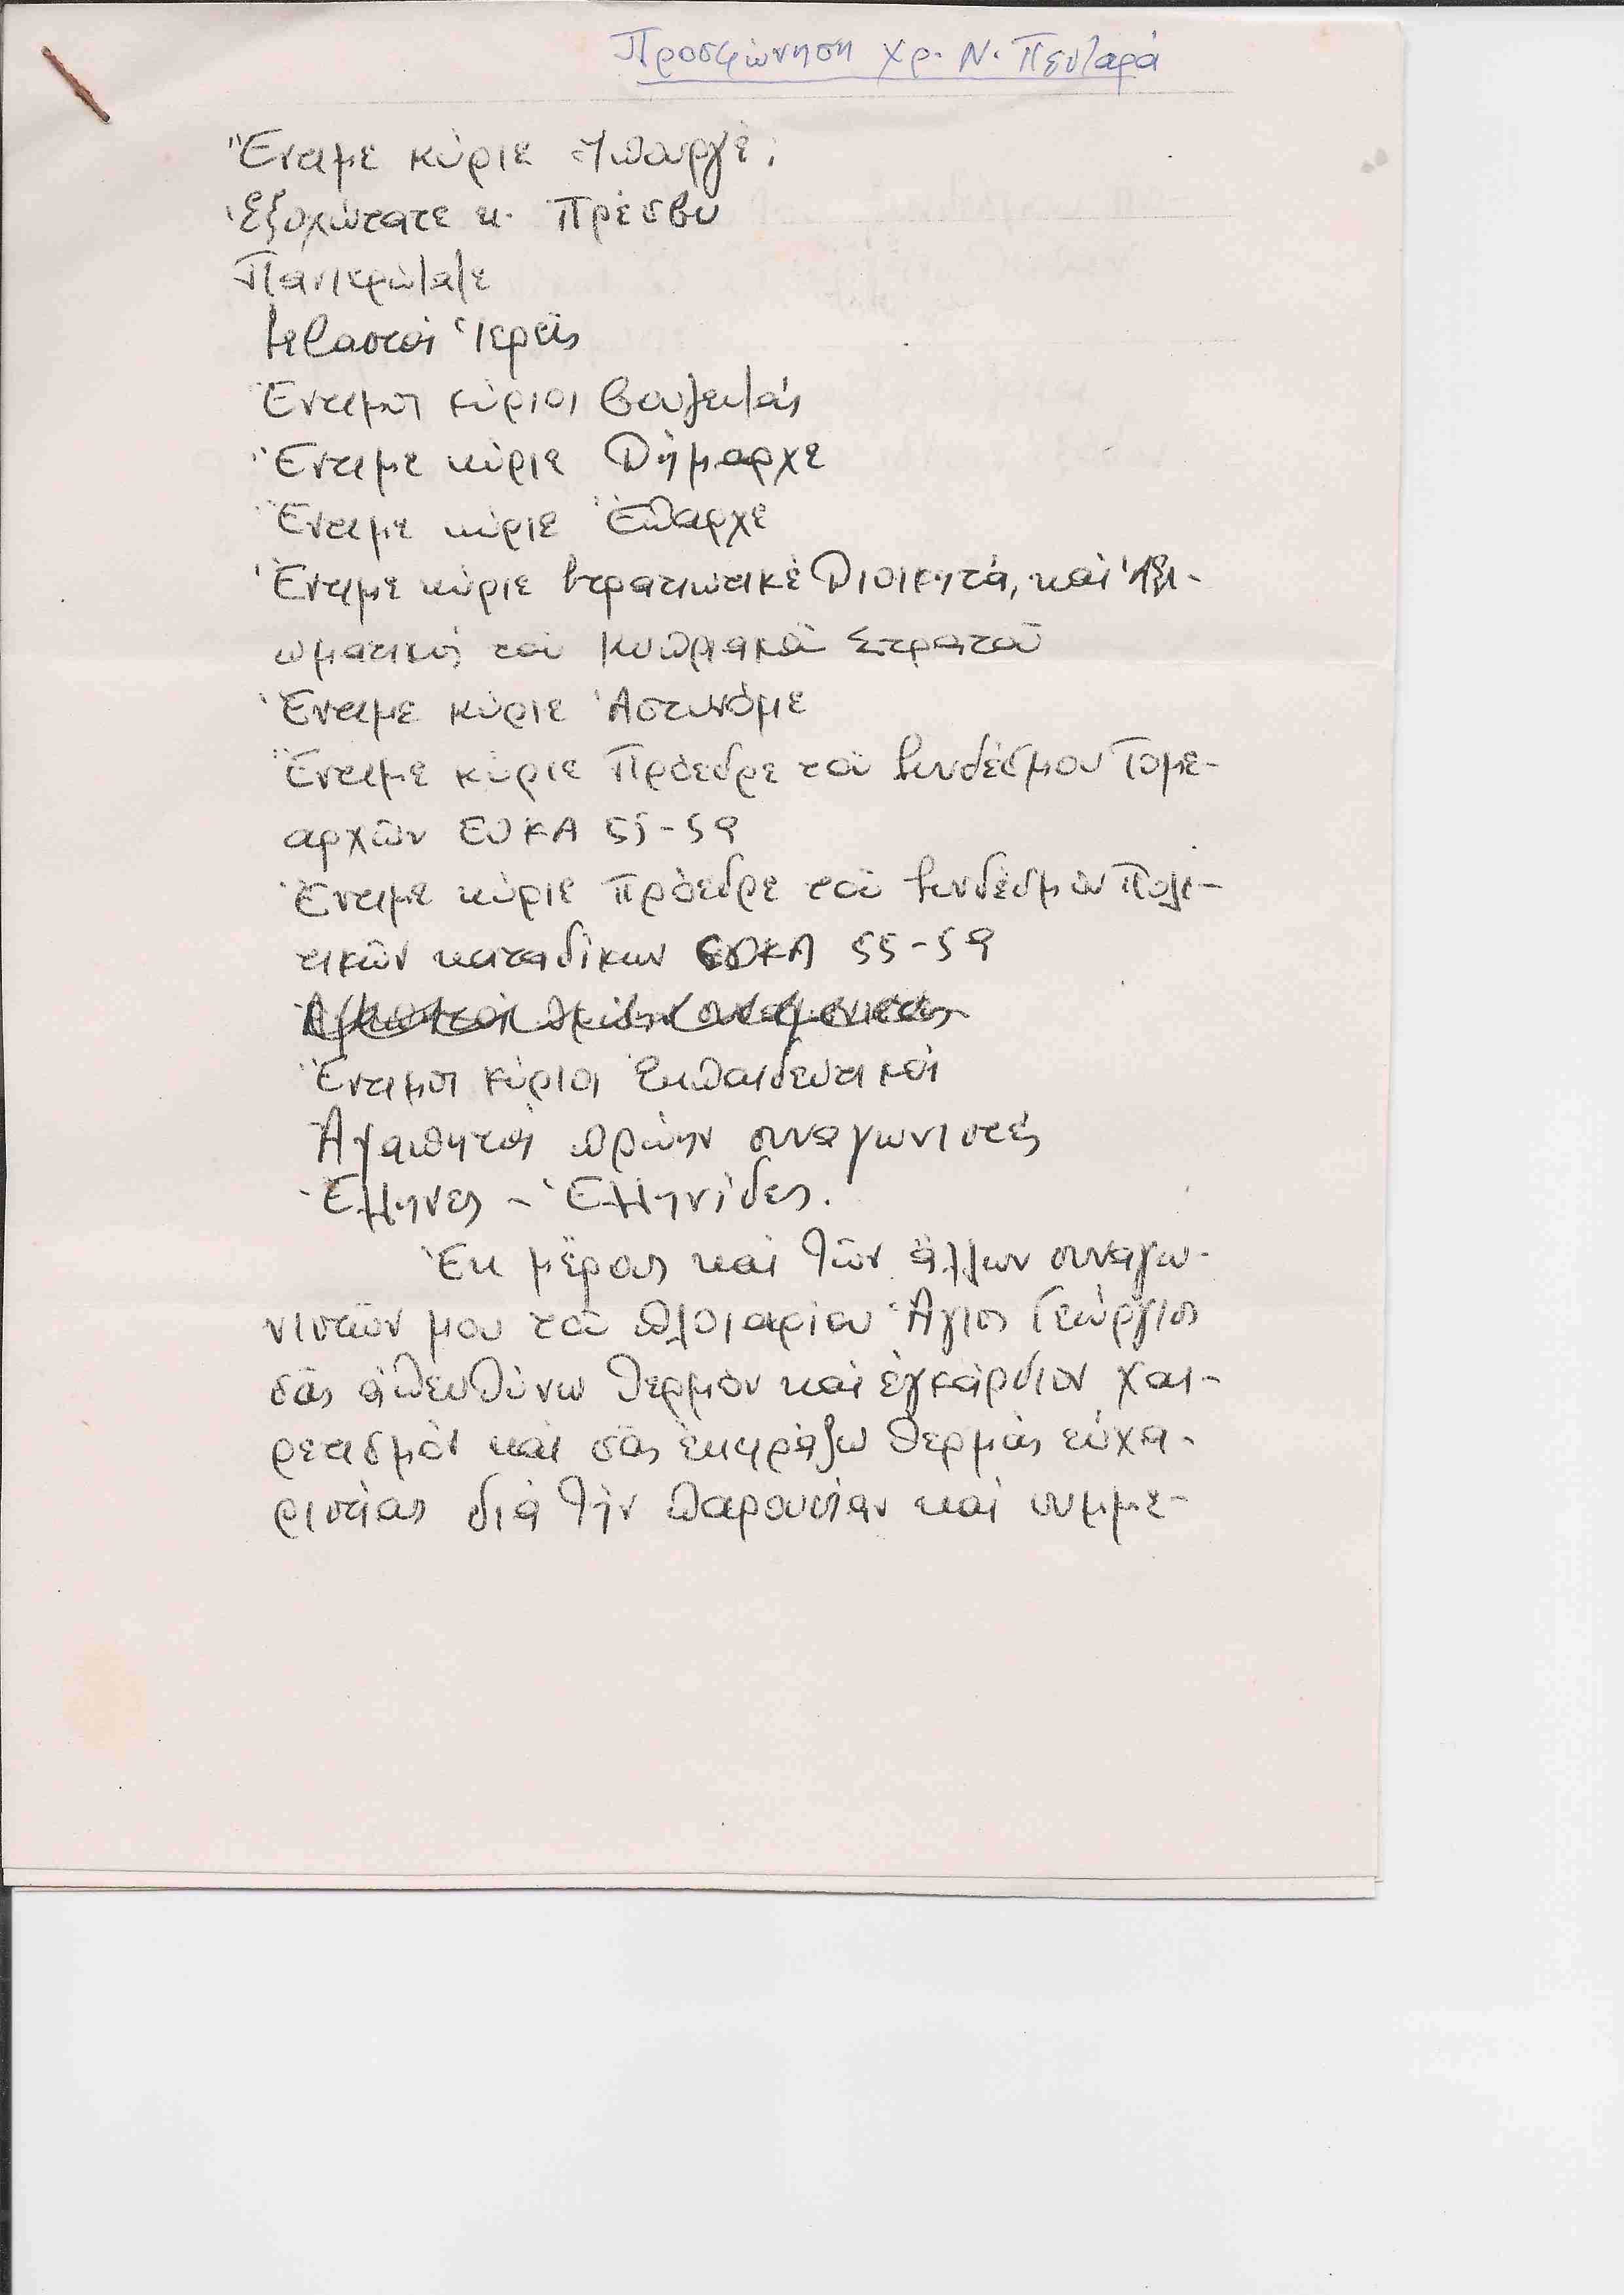 Προσφώνηση Χρ. Ν. Πενταρά
Ἔντιμε κύριε Ὑπουργέ,
Ἐξοχώτατε κ. Πρέσβυ
Πανιερώτατε
Σεβαστοί Ἱερεῖς
Ἔντιμοι κύριοι βουλευτάς
Ἔντιμε κύριε Δήμαρχε
Ἔντιμε κύριε Ἔπαρχε
Ἔντιμε κύριε Στρατιωτικέ Διοικητά, καί Ἀξι-
ωματικοί τοῦ Κυπριακοῦ Στρατοῦ
Ἔντιμε κύριε Ἀστυνόμε
Ἔντιμε κύριε Πρόεδρε τοῦ Συνδέσμου Τομε-
αρχῶν ΕΟΚΑ 55-59
Ἔντιμε κύριε Πρόεδρε τοῦ Συνδέσμου Πολι-
τικῶν καταδίκων ΕΟΚΑ 55-59
Ἀγαπητοί πρώην συναγωνιστές
Ἔντιμοι κύριοι Ἐκπαιδευτικοί
Ἀγαπητοί πρώην συναγωνιστές
Ἕλληνες - Ἑλληνίδες.
Ἐκ μέρους καί τῶν ἄλλων συναγω-
νιστῶν μου τοῦ πλοιαρίου Ἅγιος Γεώργιος
σᾶς ἀπευθύνω θερμόν καί ἐγκάρδιον χαι-
ρετισμόν καί σᾶς ἐκφράζω θερμάς εὐχα-
ριστίας διά τήν παρουσίαν καί συμμε-